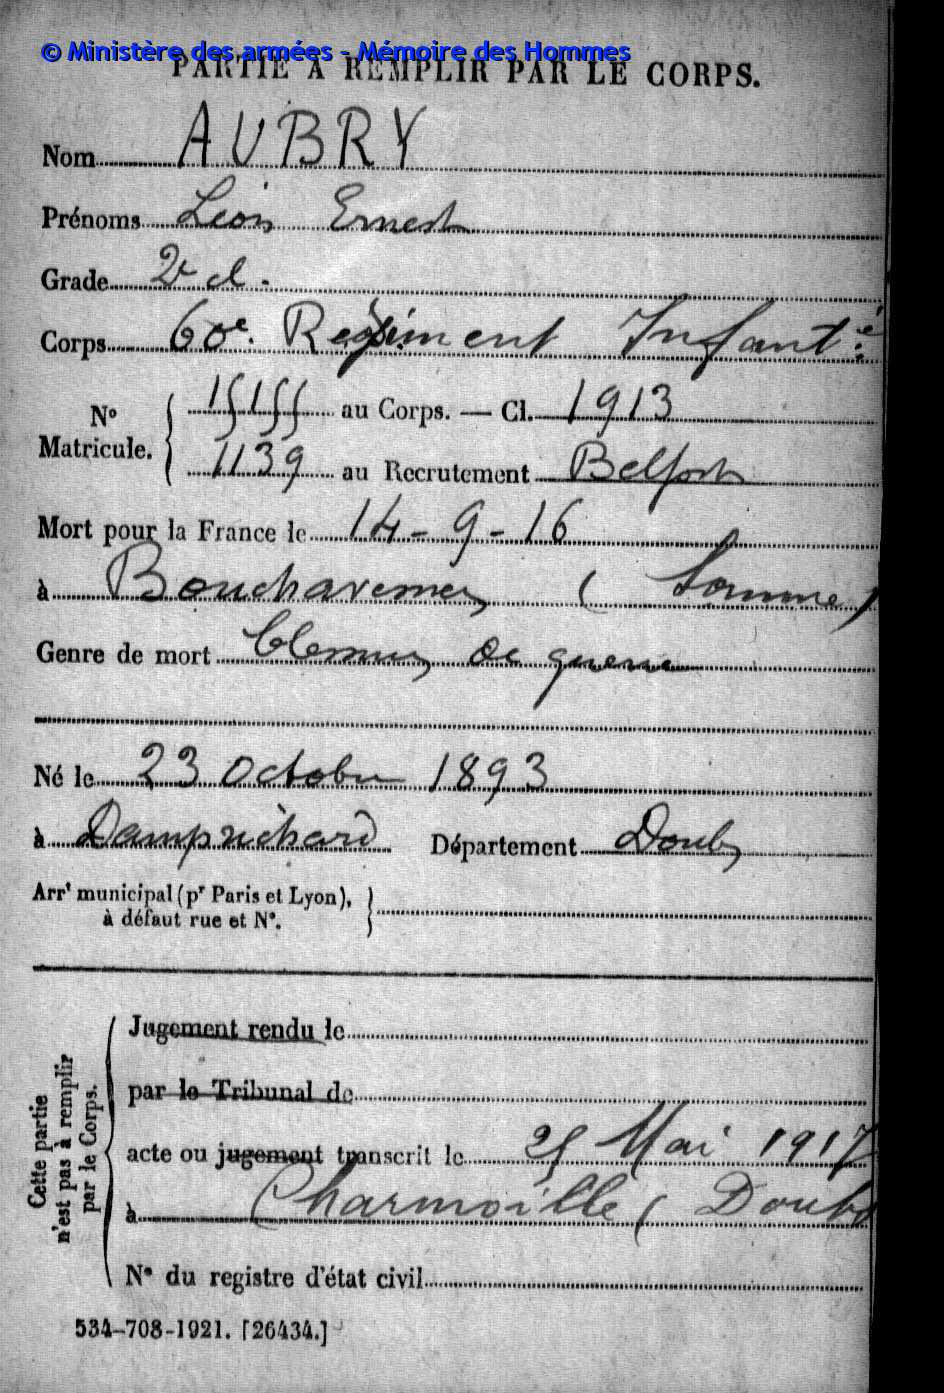 © Ministère des armées - Mémoire des Hommes
PARTIE À REMPLIR PAR LE CORPS.
Nom AUBRY
Prénoms Léon Ernest
Grade 2e cl.
Corps 60e Regiment Infantie
No Matricule. { au Corps. — Cl. 1913
1139 au Recrutement Belfort
Mort pour la France le 14-9-16
à Bouchavesnes (Somme)
Genre de mort Blessures de guerre
Né le 23 Octobre 1893
à Damprichard Département Doubs
Arrt municipal (pr Paris et Lyon),
à défaut rue et No. }
Cette partie
n'est pas à remplir
par le Corps.
Jugement rendu le
par le Tribunal de
acte ou jugement transcrit le 25 Mai 1917
à Charmoille (Doubs
No du registre d'état civil
534-708-1921. [26434.]